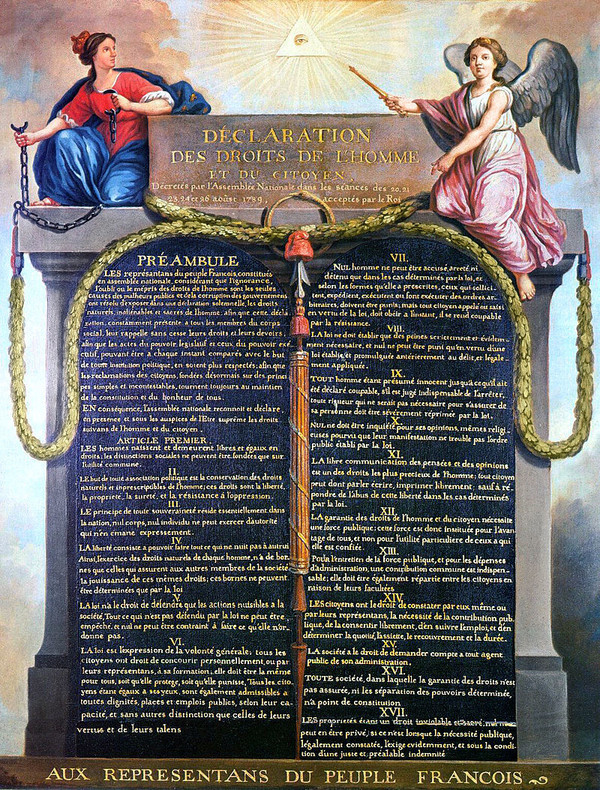 DÉCLARATION
DES DROITS DE L'HOMME
ET DU CITOYEN,
Décrétés par l'Assemblée Nationale dans les séances des 20, 21
23, 24 et 26 aoûst 1789, acceptés par le Roi
PRÉAMBULE
LES représantans du peuple François, constitués
en assemblée nationale, considérant que l'ignorance,
l'oubli ou le mépris des droits de l'homme sont les seules
causes des malheurs publics et de la corruption des gouvernemens
ont résolu d'exposer dans une déclaration solemnelle, les droits
naturels, inaliénables et sacrés de l'homme; afin que cette décla
ration, constamment présente a tous les membres du corps
social, leur rappelle sans cesse leurs droits et leurs devoirs;
afin que les actes du pouvoir législatif et ceux du pouvoir exé
cutif, pouvant être a chaque instant comparés avec le but
de toute institution politique, en soient plus respectés; afin que
les reclamations des citoyens, fondées désormais sur des princi
pes simples et incontestables, tournent toujours au maintien
de la constitution et du bonheur de tous.
EN conséquence, l'assemblée nationale reconnoit et déclare,
en presence et sous les auspices de l'Etre suprême les droits
suivans de l'homme et du citoyen.
ARTICLE PREMIER.
LES hommes naissent et demeurent libres et égaux en
droits; les distinctions sociales ne peuvent être fondées que sur
l'utilité commune.
II.
LE but de toute association politique est la conservation des droits
naturels et inprescriptibles de l'homme; ces droits sont la liberté,
la propriete, la sureté, et la résistance à l'oppression.
III.
LE principe de toute souveraineté réside essentiellement dans
la nation, nul corps, nul individu ne peut exercer d'autorité
qui n'en émane expressement.
IV.
LA liberté consiste a pouvoir faire tout ce qui ne nuit pas à autrui
Ainsi, l'exercice des droits naturels de chaque homme, n'a de bor-
nes que celles qui assurent aux autres membres de la société
la jouissance de ces mêmes droits; ces bornes ne peuvent
être déterminées que par la loi
V.
LA loi n'a le droit de défendre que les actions nuisibles a la
société. Tout ce qui n'est pas defendu par la loi ne peut être
empêché, et nul ne peut être contraint à faire ce qu'elle n'or-
donne pas.
VI.
LA loi est l'expression de la volonté générale; tous les
citoyens ont droit de concourir personnellement, ou par
leurs représentans, à sa formation; elle doit être la même
pour tous, soit qu'elle protege, soit qu'elle punisse. Tous les cito
yens étant égaux a ses yeux, sont également admissibles a
toutes dignités, places et emplois publics, selon leur ca
pacité, et sans autres distinction que celles de leurs
vertus et de leurs talens
VII.
NUL homme ne peut être accusé, arreté, ni
détenu que dans les cas déterminés par la loi, et
selon les formes qu'elle a prescrites, ceux qui sollici
tent, expédient, exécutent ou font exécuter des ordres ar-
bitraires, doivent être punis; mais tout citoyen appelé ou saisi
en vertu de la loi, doit obéir a l'instant, il se rend coupable
par la résistance.
VIII.
LA loi ne doit établir que des peines strictement et évidem-
ment nécessaire, et nul ne peut être puni qu'en vertu d'une
loi établie, et promulguée antérierement au délit, et légale
ment appliquée.
IX.
TOUT homme étant présumé innocent jusqu'a ce qu'il ait
été déclaré coupable, s'il est jugé indispensable de l'arrêter,
toute rigueur qui ne serait pas nécessaire pour s'assurer de
sa personne doit être sévèrement réprimée par la loi.
X.
NUL ne doit être inquiété pour ses opinions, mêmes religi
euses pourvu que leur manifestation ne trouble pas l'ordre
public établi par la loi.
XI.
LA libre communication des pensées et des opinions
est un des droits les plus precieux de l'homme; tout citoyen
peut donc parler écrire, imprimer librement: sauf à ré-
pondre de l'abus de cette liberté dans les cas déterminés
par la loi.
XII.
LA garantie des droits de l'homme et du citoyen nécessite
une force publique; cette force est donc instituée pour l'avan
tage de tous, et non pour l'utilité particuliere de ceux a qui
elle est confiée.
XIII.
Pour l'entretien de la force publique, et pour les dépenses
d'administration, une contribution commune est indispen-
sable; elle doit être également répartie entre les citoyens en
raison de leurs facultées.
XIV.
LES citoyens ont le droit de constater par eux même ou
par leurs représentans, la nécessité de la contribution pub
lique, de la consentir librement, d'en suivre l'emploi, et d'en
déterminer la quotité, l'assiette, le recouvrement et la durée.
XV.
LA société a le droit de demander compte a tout agent
public de son administration.
XVI.
TOUTE société, dans laquelle la garantie des droits n'est
pas assurée, ni les séparation des pouvoirs déterminée,
n'a point de constitution
XVII.
LES propriétés étant un droit inviolable et sacré, nul ne
peut en être privé, si ce n'est lorsque la nécessité publique,
légalement constatée, l'exige evidemment, et sous la condi
tion d'une juste et préalable indemnité
AUX REPRESENTANS DU PEUPLE FRANCOIS